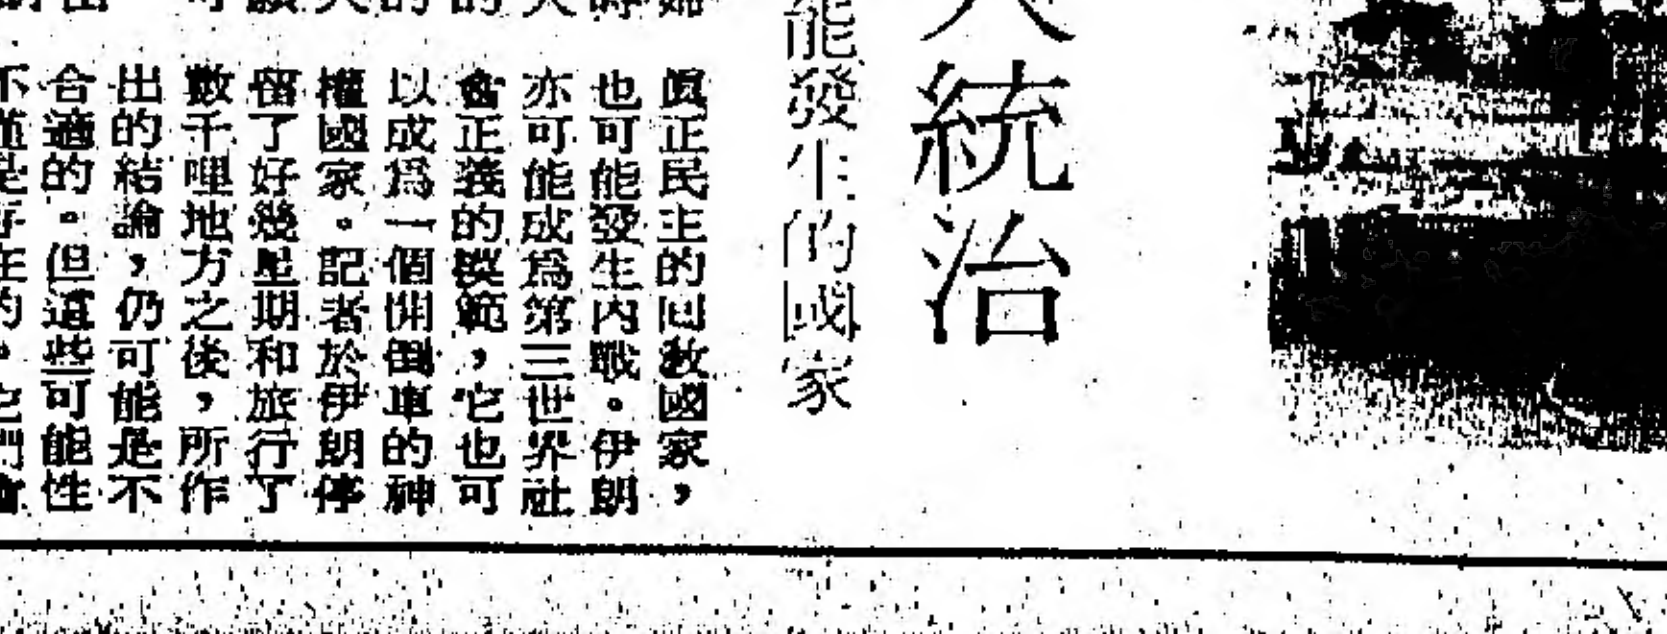 統治
能發生的國家
眞正民主的回教國家，
也可能發生內戰。伊朗
亦可能成爲第三世界社
會正義的模範，它也可
以成爲一個開倒車的神
權國家。記者於伊朗停
留了好幾星期和旅行了
數千哩地方之後，所作
出的結論，仍可能是不
合適的。但這些可能性
不僅是存在的。它們會